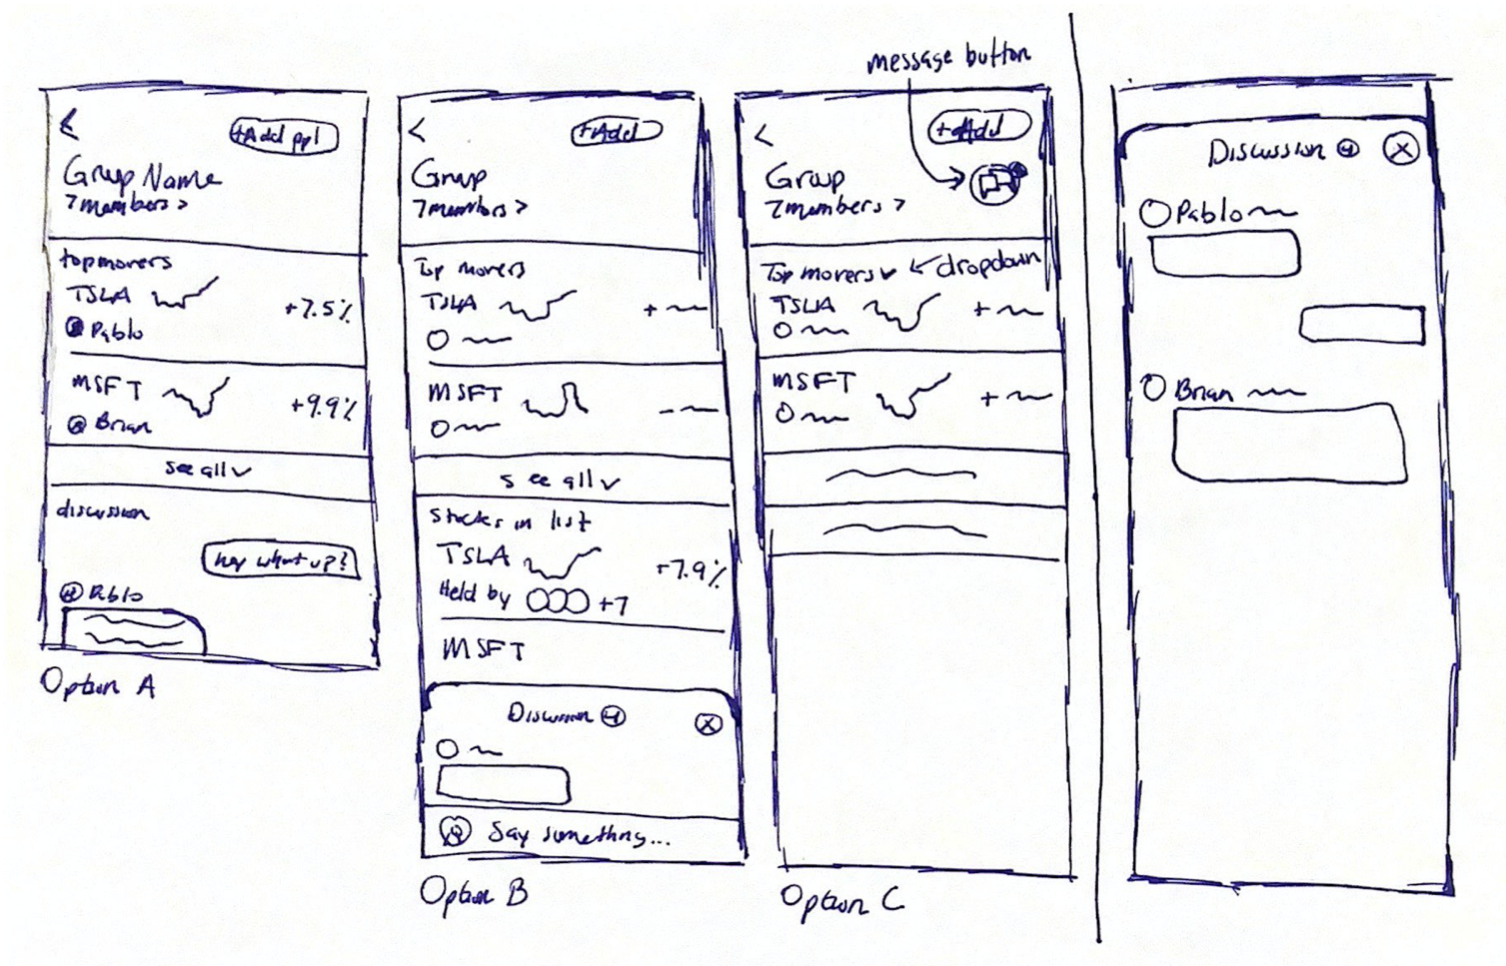 message button
<
+Add ppl
Group Name
7 members >
top movers
TSLA
+7.5%
Pablo
MSFT
+9.9%
Brian
see all
discussion
hey what up?
Pablo
Option A
<
+Add
Group
7 members >
Top movers
TSLA
+
MSFT
-
see all
Stocks in list
TSLA
+7.9%
Held by
+7
MSFT
Discussion
X
Say something...
Option B
<
+Add
Group
7 members >
Top movers
dropdown
TSLA
+
MSFT
+
Option C
Discussion
X
Pablo
Brian